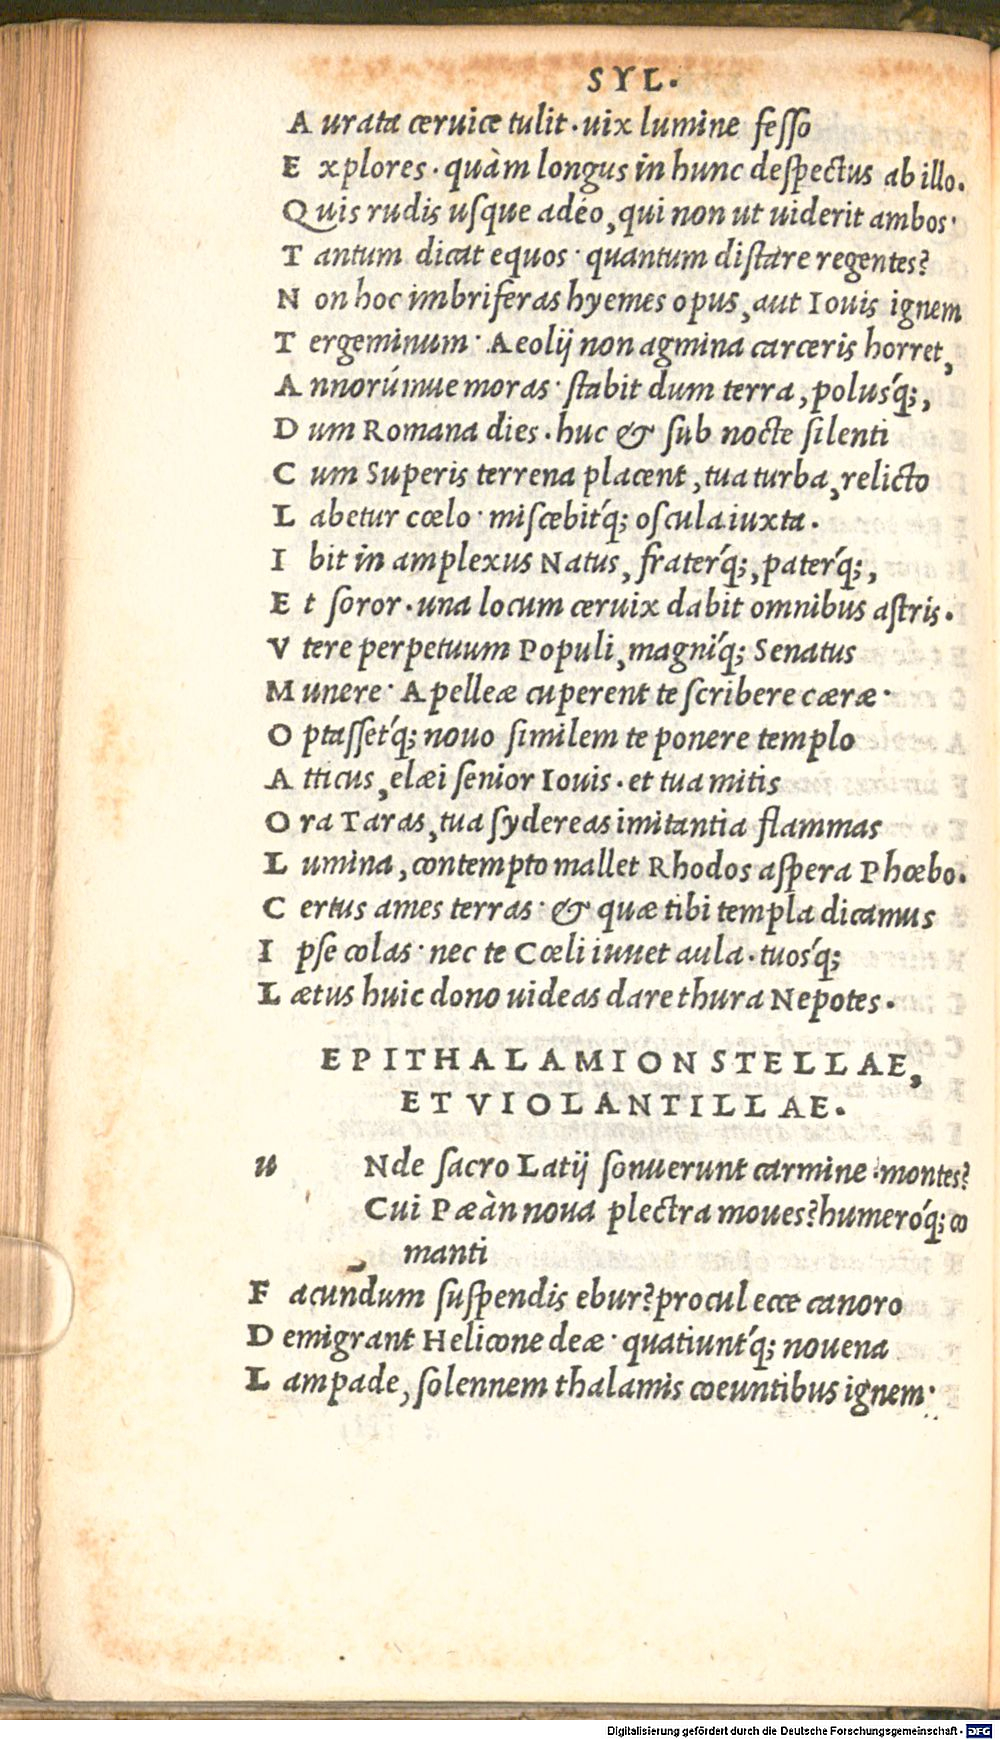 SYL.
A urata ceruice tulit · uix lumine fesso
E xplores · quàm longus in hunc despectus ab illo.
Q uis rudis usque adeo, qui non ut uiderit ambos·
T antum dicat equos · quantum distare regentes?
N on hoc imbriferas hyemes opus, aut Iouis ignem
T ergeminum · Aeolij non agmina carceris horret,
A nnorúmue moras · stabit dum terra, polusq́;,
D um Romana dies · huc & sub nocte silenti
C um Superis terrena placent, tua turba, relicto
L abetur cœlo · miscebitq́; oscula iuxta.
I bit in amplexus Natus, fraterq́;, paterq́;,
E t soror · una locum ceruix dabit omnibus astris.
V tere perpetuum Populi, magniq́; Senatus
M unere · Apelleæ cuperent te scribere cæræ·
O ptassetq́; nouo similem te ponere templo
A tticus, elæi senior Iouis · et tua mitis
O ra Taras, tua sydereas imitantia flammas
L umina, contempto mallet Rhodos aspera Phœbo.
C ertus ames terras · & quæ tibi templa dicamus
I pse colas · nec te Cœli iuuet aula · tuosq́;
L ætus huic dono uideas dare thura Nepotes.
EPITHALAMION STELLAE,
ET VIOLANTILLAE.
u Nde sacro Latij sonuerunt carmine ·montes?
Cui Pæàn noua plectra moues?humeróq́; co
manti
F acundum suspendis ebur?procul ecce canoro
D emigrant Helicone deæ · quatiuntq́; nouena
L ampade, solennem thalamis coeuntibus ignem·
Digitalisierung gefördert durch die Deutsche Forschungsgemeinschaft - DFG